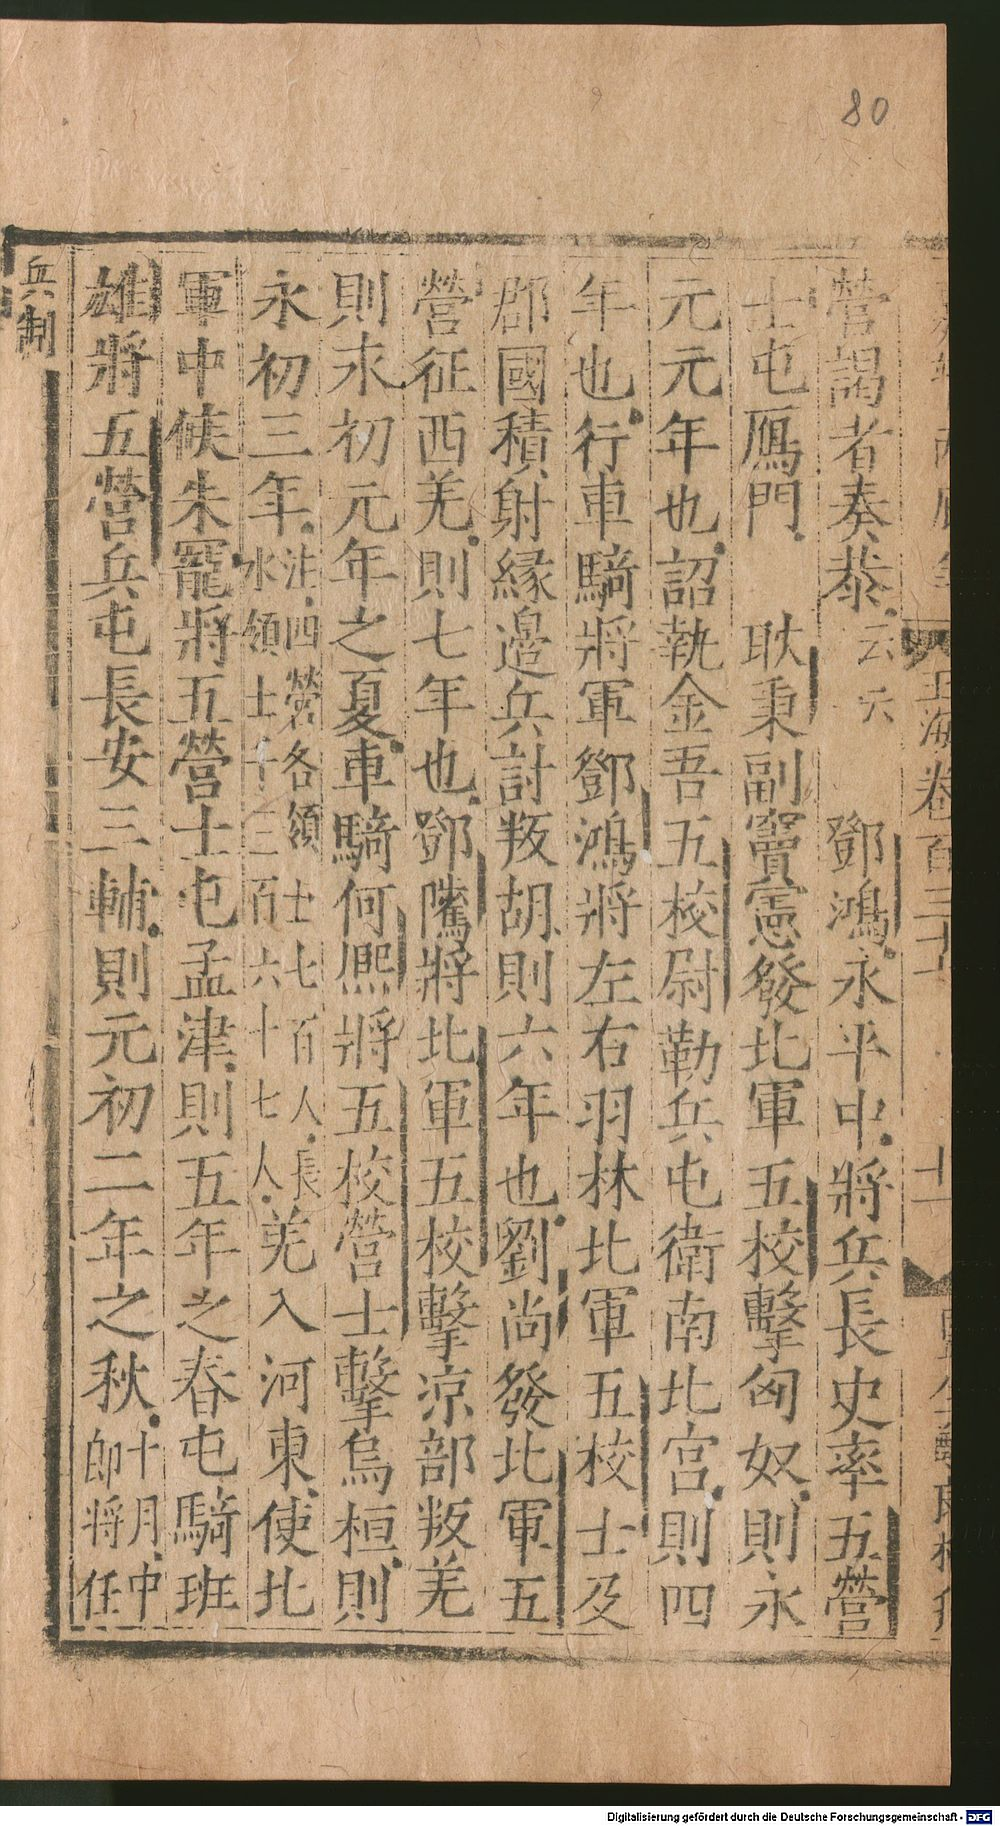 80
玉海卷百三十
營謁者奏㳟云云 鄧鴻永平中將兵長史率五營
士屯鴈門 耿秉副竇憲發北軍五校擊匈奴則永
元元年也詔執金吾五校尉勒兵屯衛南北宫則四
年也行車騎將軍鄧鴻將左右羽林北軍五校士及
郡國積射縁邉兵討叛胡則六年也劉尚發北軍五
營征西羌則七年也鄧隲將北軍五校擊凉部叛羌
則永初元年之夏車騎何熈將五校營士擊烏桓則
永初三年注四營各領士七百人長水領士千三百六十七人羌入河東使北
軍中候朱寵將五營士屯孟津則五年之春屯騎班
雄將五營兵屯長安三輔則元初二年之秋十月中郎將任
兵制
Digitalisierung gefördert durch die Deutsche Forschungsgemeinschaft - DFG